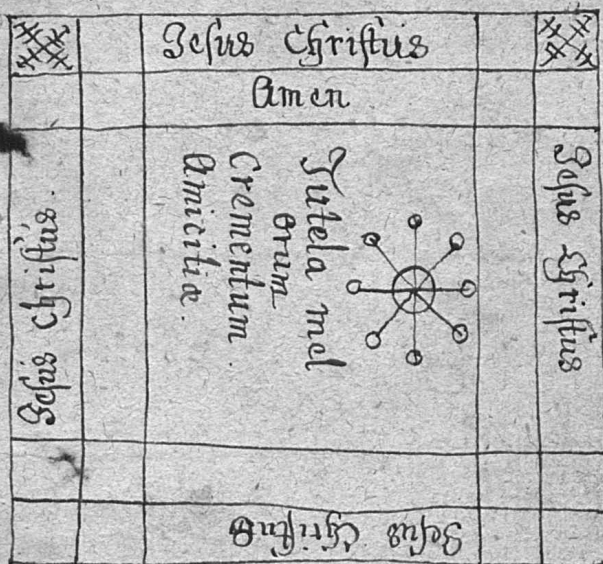 Jesus Christus
Amen
Jesus Christus
Tutela mel
orum
Crementum
Amicitiæ.
Jesus Christus.
Jesus Christus